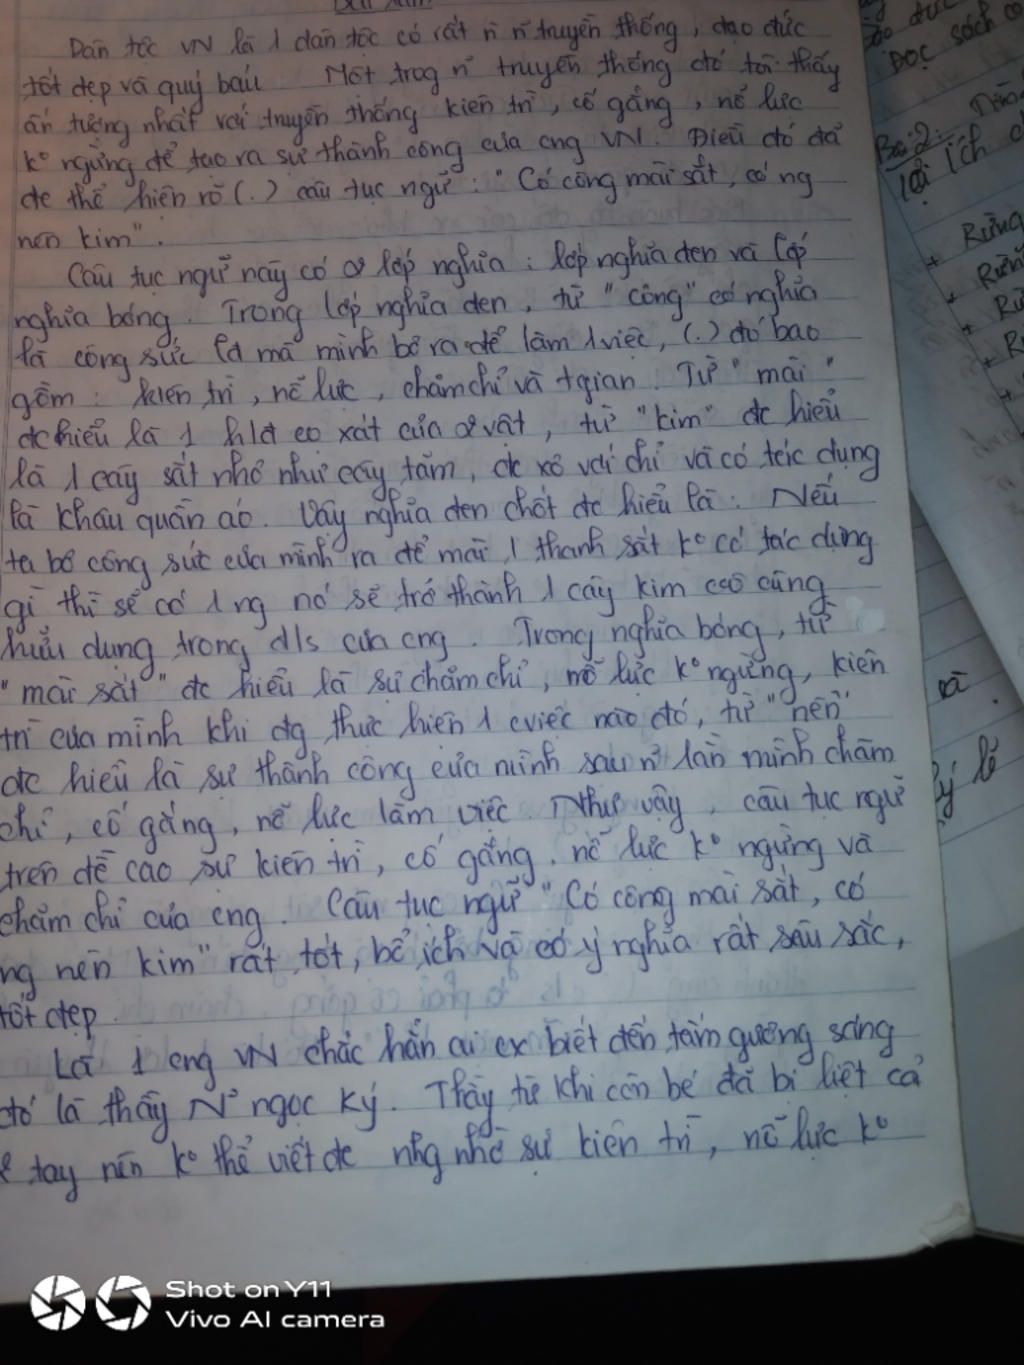 Bài làm
Dân tộc VN là 1 dân tộc có rất n' n' truyền thống, đạo đức
tốt đẹp và quý báu Một trog n~ truyền thống đó tôi thấy
ấn tượng nhất với truyền thống kiên trì, cố gắng, nổ lực
k° ngừng để tạo ra sự thành công của cng VN. Điều đó đã
đc thể hiện rõ (.) câu tục ngữ: "Có công mài sắt, có ng
nên kim".
Câu tục ngữ này có 2 lớp nghĩa: lớp nghĩa đen và lớp
nghĩa bóng. Trong lớp nghĩa đen, từ "công" có nghĩa
là công sức lđ mà mình bỏ ra để làm 1 việc, (.) đó bao
gồm: kiên trì, nổ lực, chăm chỉ và tgian. Từ "mài"
đc hiểu là 1 hlđ cọ xát của 2 vật, từ "kim" đc hiểu
là 1 cây sắt nhỏ như cây tăm, đc xỏ với chỉ và có tác dụng
là khâu quần áo. Vậy nghĩa đen chốt đc hiểu là: Nếu
ta bỏ công sức của mình ra để mài 1 thanh sắt k° có tác dụng
gì thì sẽ có 1 ng nó sẽ trở thành 1 cây kim cũng
hữu dụng trong đ/s của cng. Trong nghĩa bóng, từ
"mài sắt" đc hiểu là sự chăm chỉ, nổ lực k° ngừng, kiên
trì của mình khi đg thực hiện 1 cviệc nào đó, từ "nên"
đc hiểu là sự thành công của mình sau n~ lần mình chăm
chỉ, cố gắng, nổ lực làm việc. Như vậy, câu tục ngữ
trên đề cao sự kiên trì, cố gắng, nổ lực k° ngừng và
chăm chỉ của cng. Câu tục ngữ "Có công mài sắt, có
ng nên kim" rất tốt, bổ ích và có ý nghĩa rất sâu sắc,
tốt đẹp.
Là 1 cng VN chắc hẳn ai cx biết đến tấm gương sáng
đó là thầy N° ngọc Ký. Thầy từ khi còn bé đã bị liệt cả
2 tay nên k° thể viết đc nhg nhờ sự kiên trì, nổ lực k°
Đọc sách
Bài 2:
lợi ích
+ Rừng
+ Rừng
+
+
+
và
lẽ
Shot on Y11
Vivo AI camera